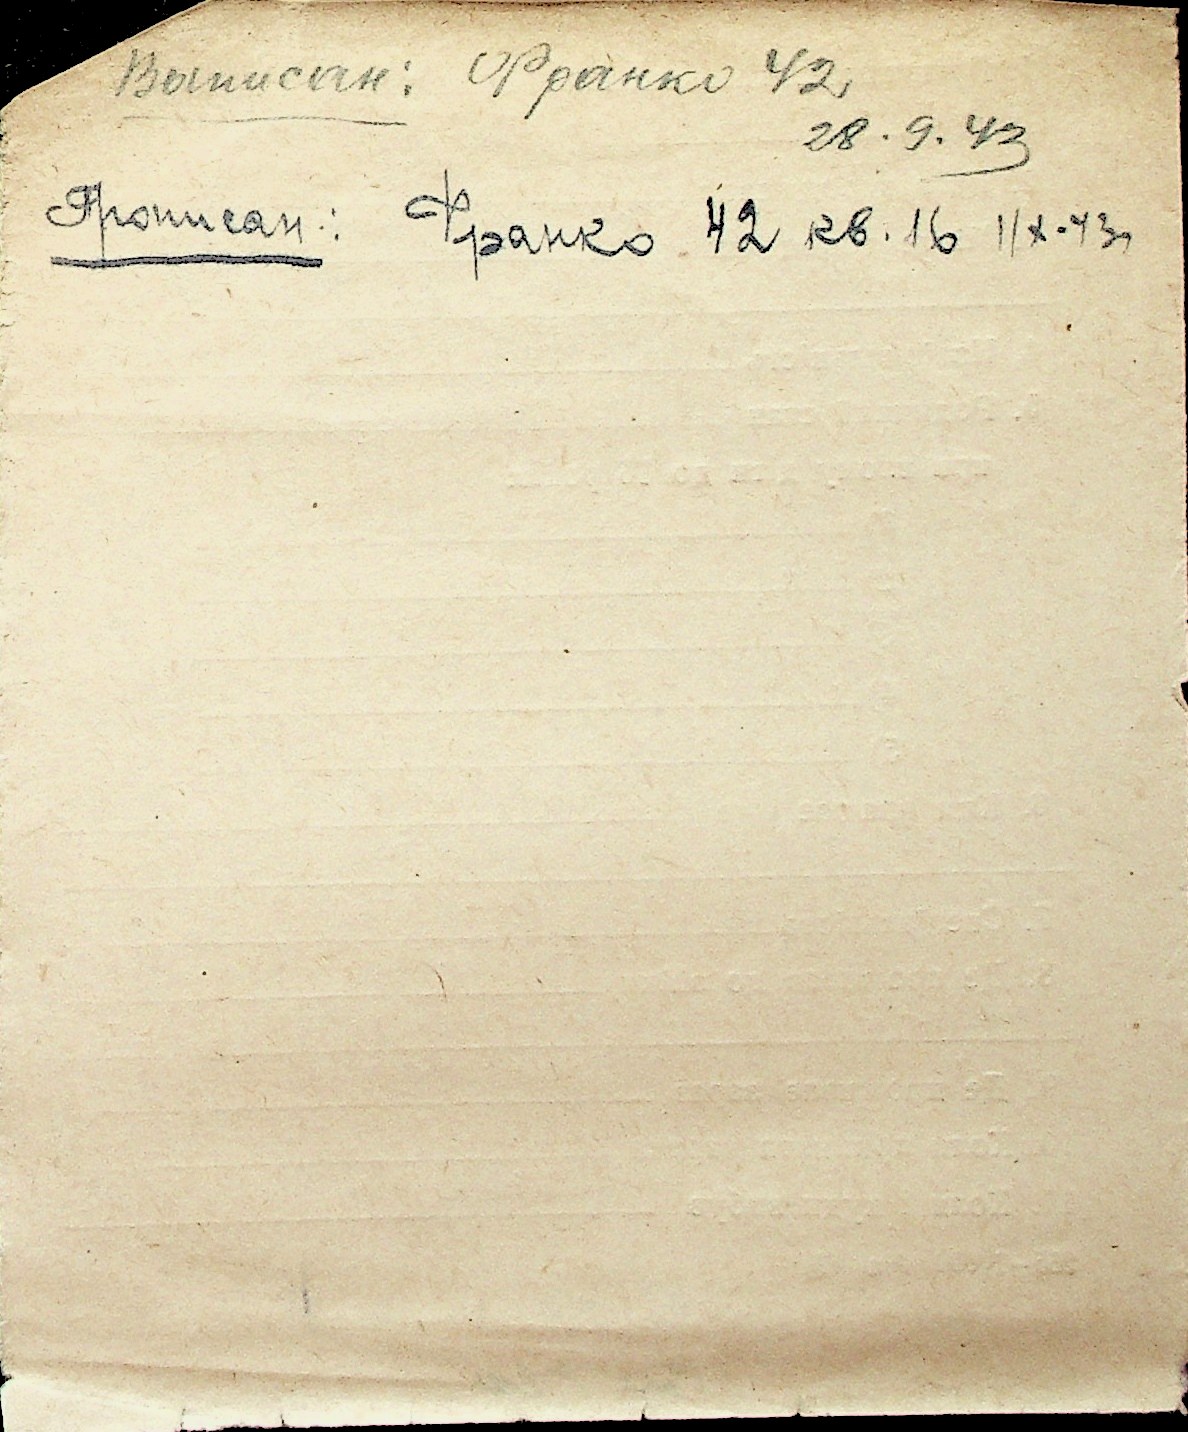 Выписан: Франко 42
28.9.43
Прописан: Франко 42 кв. 16 1/X-43